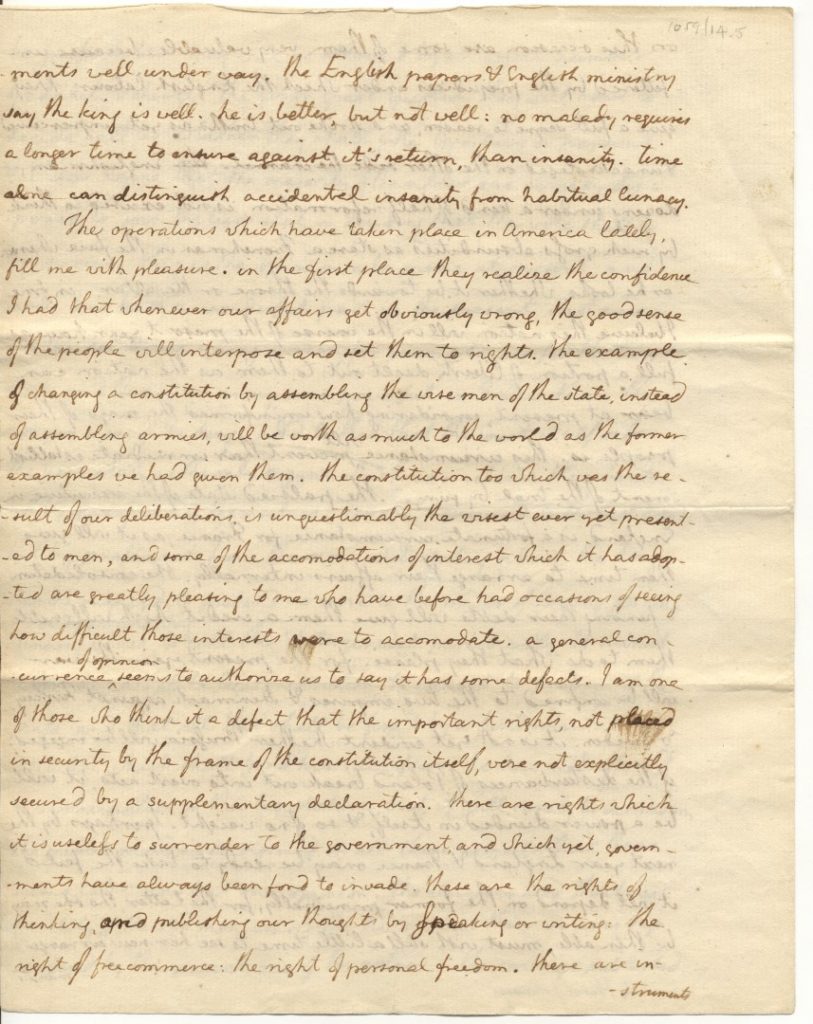 1059/14.5
-ments well under way. the English papers & English ministry
say the king is well. he is better, but not well: no malady requires
a longer time to ensure against it's return, than insanity. time
alone can distinguish accidental insanity from habitual lunacy.
The operations which have taken place in America lately,
fill me with pleasure. in the first place they realize the confidence
I had that whenever our affairs get obviously wrong, the good sense
of the people will interpose and set them to rights. the example
of changing a constitution by assembling the wise men of the state, instead
of assembling armies, will be worth as much to the world as the former
examples we had given them. the constitution too which was the re-
-sult of our deliberations, is unquestionably the wisest ever yet present-
-ed to men, and some of the accomodations of interest which it has adop-
-ted are greatly pleasing to me who have before had occasions of seeing
how difficult those interests were to accomodate. a general con-
-currence of opinion seems to authorize us to say it has some defects. I am one
of those who think it a defect that the important rights, not placed
in security by the frame of the constitution itself, were not explicitly
secured by a supplementary declaration. there are rights which
it is useless to surrender to the government, and which yet, govern-
-ments have always been fond to invade. these are the rights of
thinking, and publishing our thoughts by speaking or writing: the
right of free commerce: the right of personal freedom. there are in-
-struments